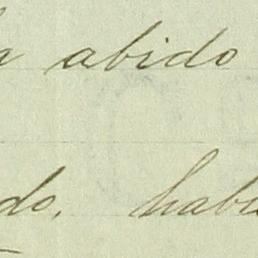 a abido
do. habi